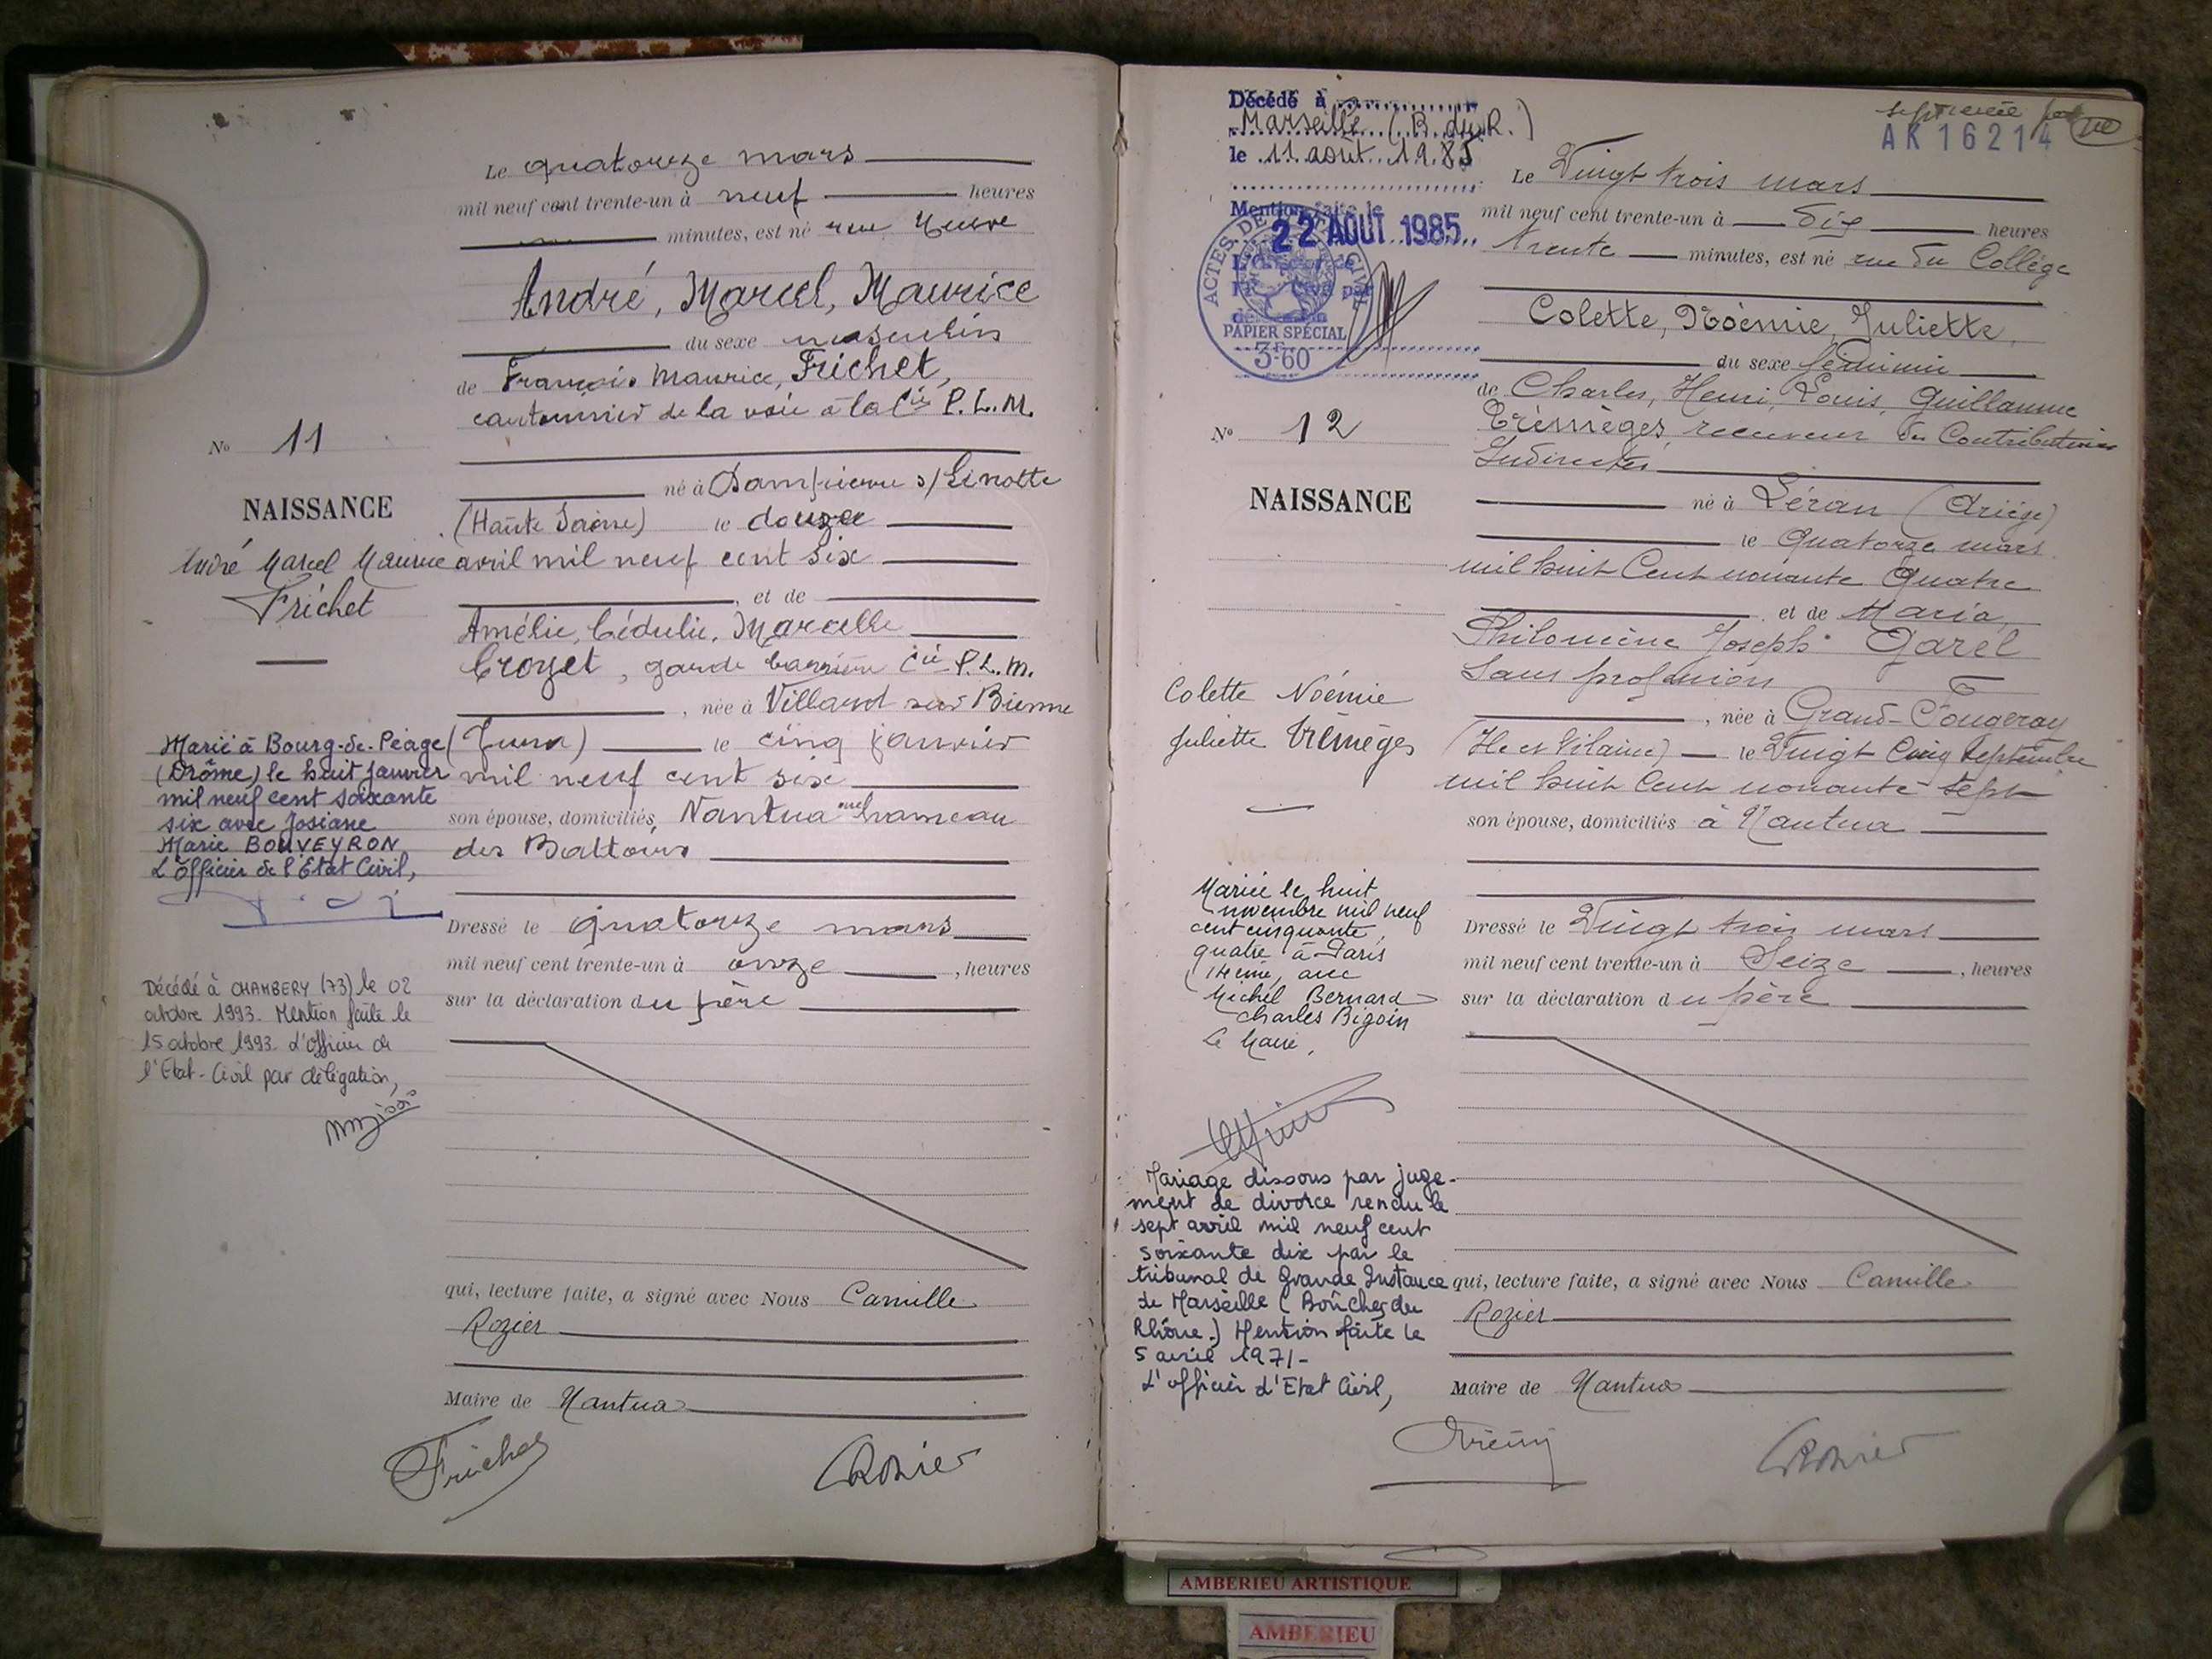 Le quatorze mars
mil neuf cent trente-un à neuf heures
minutes, est né rue Neuve
André, Marcel, Maurice
du sexe masculin
de François Maurice, Frichet,
cantonnier de la voie à la Cie P.L.M.
né à Dampierre s/ Linotte
(Haute Saône) le douze
avril mil neuf cent six
et de
Amélie, Cédulie, Marcelle
Crozet, garde barrière Cie P.L.M.
, née à Villard sur Bienne
(Jura) le cinq janvier
mil neuf cent six
son épouse, domiciliés, Nantua hameau
des Battoirs
Dressé le quatorze mars
mil neuf cent trente-un à onze , heures
sur la déclaration du père
qui, lecture faite, a signé avec Nous Camille
Rozier
Maire de Nantua
Frichet
CRozier
No 11
NAISSANCE
André Marcel Maurice
Frichet
Marié à Bourg-de-Péage
(Drôme) le huit janvier
mil neuf cent soixante
six avec Josiane
Marie BOUVEYRON
L'officier de l'Etat Civil,
Décédé à CHAMBERY (73) le 02
octobre 1993. Mention faite le
15 octobre 1993. L'officier de
l'Etat-Civil par délégation,
Décédé à
Marseille (B. du R.)
le 11 août 1985
Mention faite le
22 AOUT 1985
ACTES DE
CIVIL
PAPIER SPÉCIAL
3F60
AK16214
Le Vingt trois mars
mil neuf cent trente-un à Dix heures
trente minutes, est né rue du Collège
Colette, Noémie, Juliette,
du sexe féminin
de Charles, Henri, Louis, Guillaume
Trémèges, receveur des Contributions
Indirectes
né à Léran (Ariège)
le Quatorze mars
mil huit Cent nonante Quatre
et de Maria,
Philomène Joseph Garel
Sans profession
, née à Grand-Fougeray
(Ile et Vilaine) le Vingt Cinq Septembre
mil huit Cent nonante sept
son épouse, domiciliés à Nantua
Dressé le Vingt trois mars
mil neuf cent trente-un à Seize , heures
sur la déclaration du père
qui, lecture faite, a signé avec Nous Camille
Rozier
Maire de Nantua
CRozier
No 12
NAISSANCE
Colette Noémie
Juliette Trémèges
Mariée le huit
novembre mil neuf
cent cinquante
quatre à Paris
14ème, avec
Michel Bernard
Charles Bigoin
Le Maire,
Mariage dissous par juge-
ment de divorce rendu le
sept avril mil neuf cent
soixante dix par le
tribunal de Grande Instance
de Marseille (Bouches du
Rhône.) Mention faite le
5 avril 1971-
L'officier d'Etat Civil,
AMBERIEU ARTISTIQUE
AMBERIEU